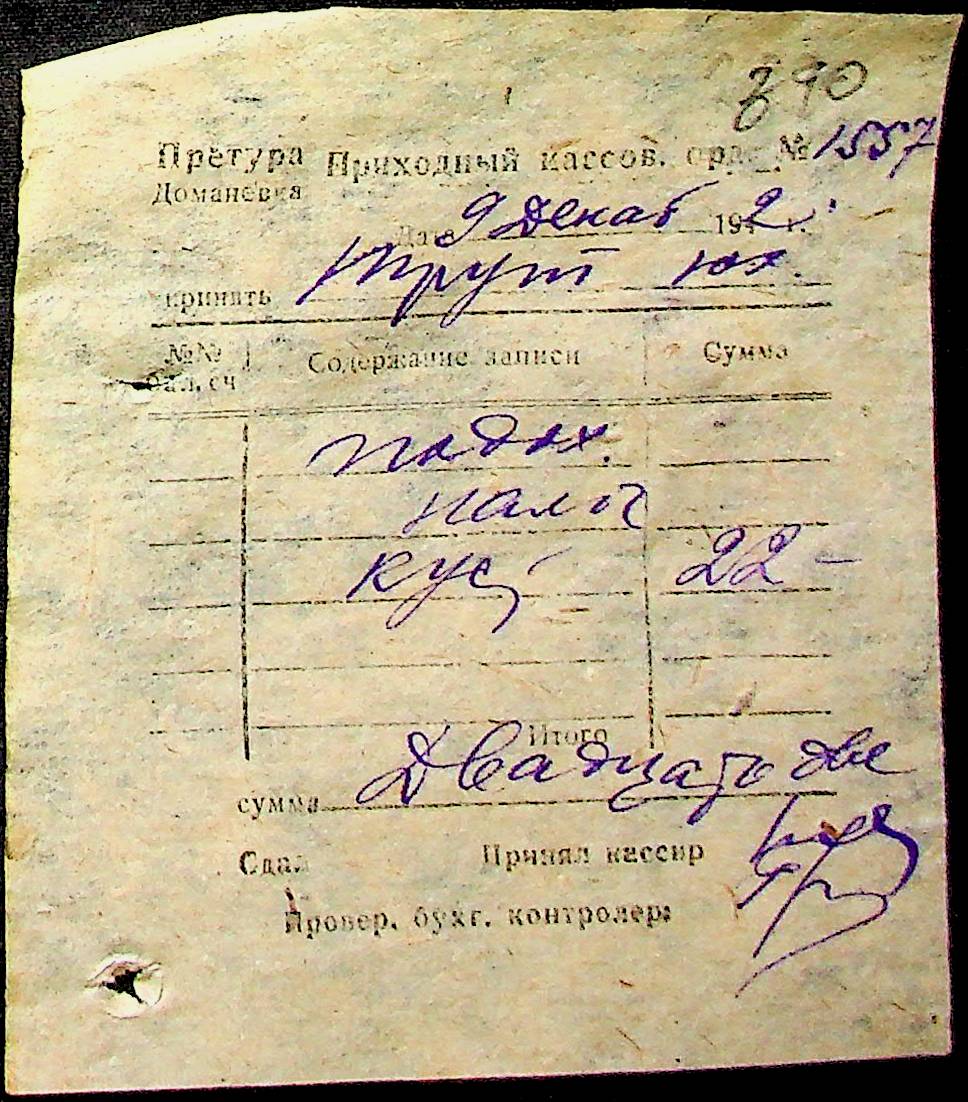 390
Претура Приходный кассов. орд. № 1557
Доманевка
Дата 9 Декаб 1942 г.
принять Трут Юх.
№№ бал. сч Содержание записи Сумма
подох.
налог
куст 22 –
Итого
сумма Двадцать две
Сдал Принял кассир
Провер. бухг. контролер: